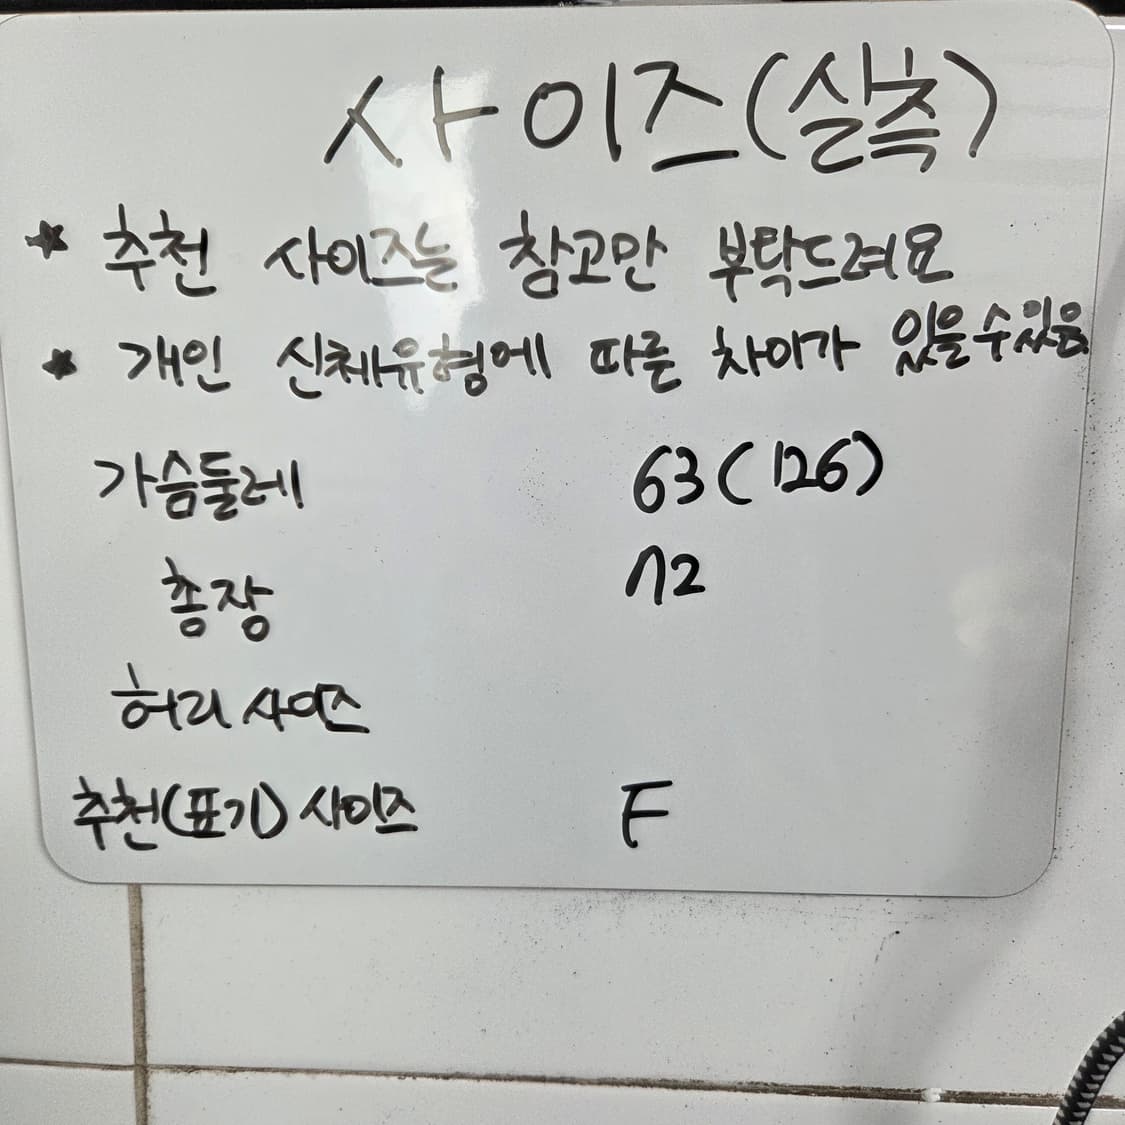 사이즈(실측)
* 추천 사이즈는 참고만 부탁드려요
* 개인 신체유형에 따른 차이가 있을수있음
가슴둘레 63(126)
총장 72
허리 사이즈
추천(표기) 사이즈 F